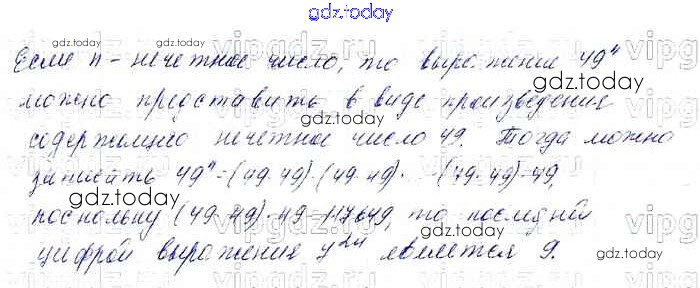 gdz.today
Если n - нечетное число, то выражение 49ⁿ
можно представить в виде произведения
содержащего нечетное число 49. Тогда можно
записать 49ⁿ=(49·49)·(49·49)· … ·(49·49)·49,
поскольку (49·49)·49=117649, то последней
цифрой выражения является 9.
gdz.today
gdz.today
gdz.today
gdz.today
gdz.today
gdz.today